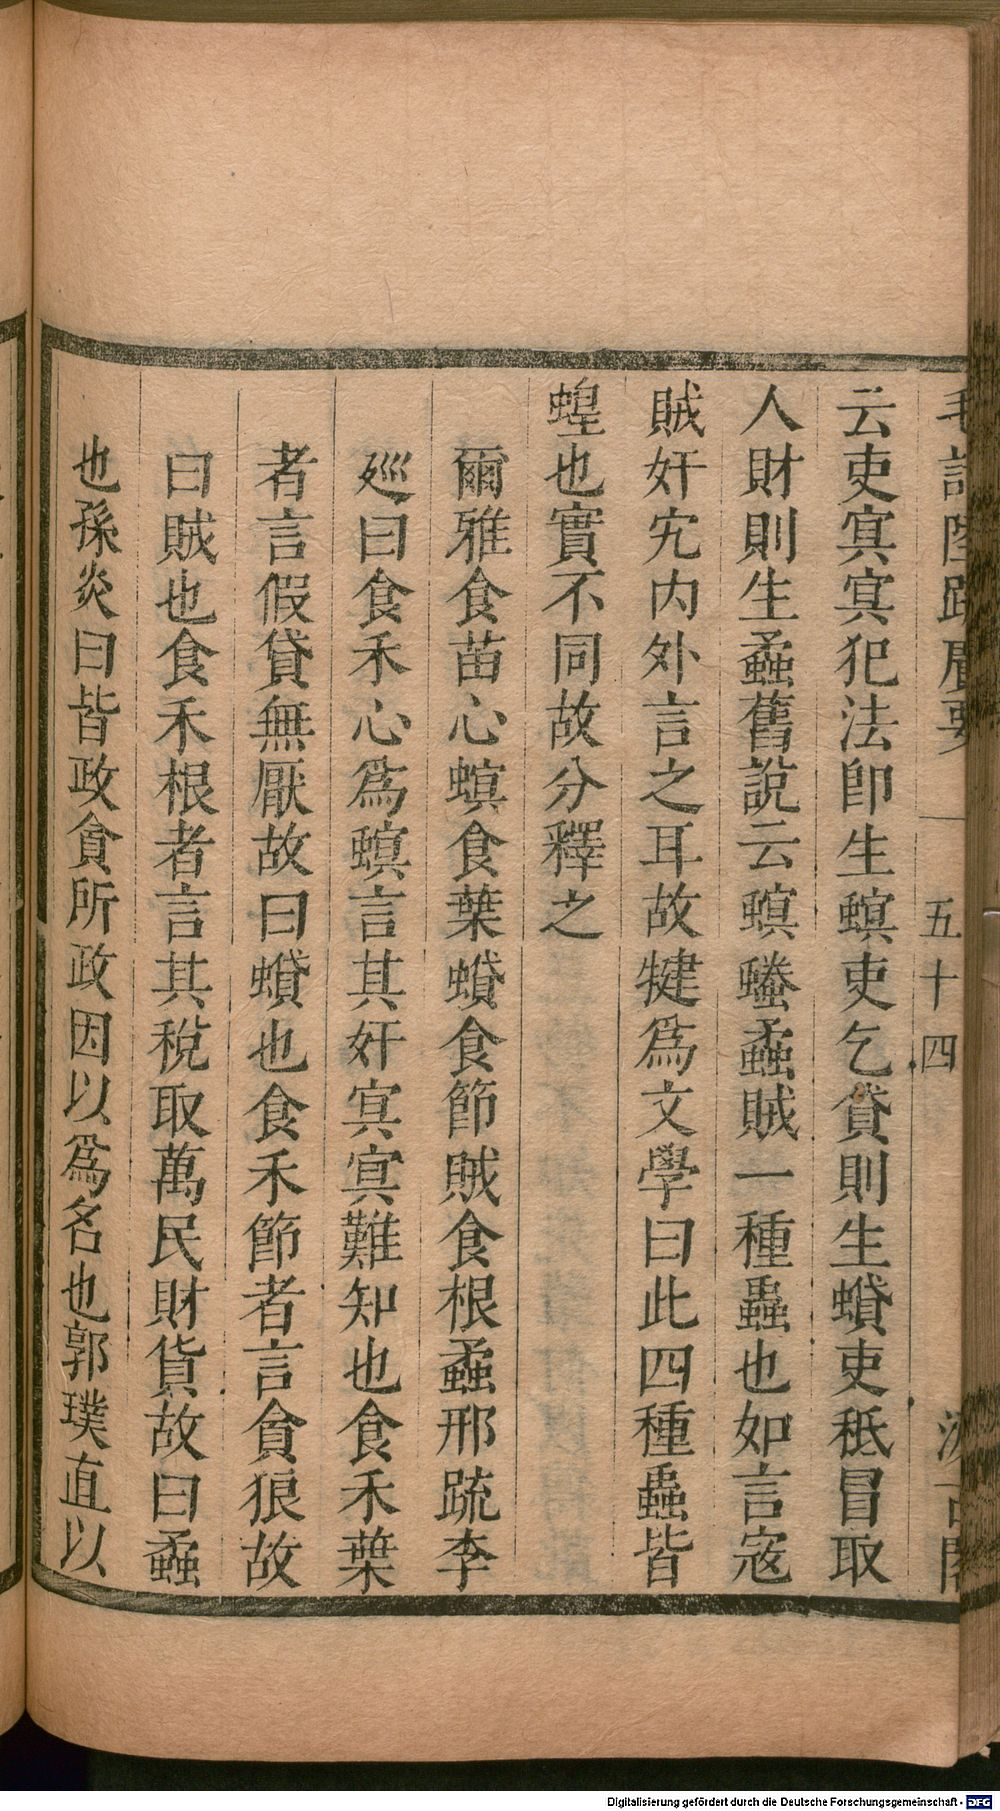 毛詩陸疏廣要
五十四
汲古閣
云吏寞寞犯法卽生螟吏乞貸則生蟘吏秪冒取
人財則生蟊舊說云螟螣蟊賊一種蟲也如言寇
賊奸宄內外言之耳故犍爲文學曰此四種蟲皆
蝗也實不同故分釋之
爾雅食苗心螟食葉蟘食節賊食根蟊邢疏李
廵曰食禾心爲螟言其奸寞寞難知也食禾葉
者言假貸無厭故曰蟘也食禾節者言貪狼故
曰賊也食禾根者言其稅取萬民財貨故曰蟊
也孫炎曰皆政貪所政因以爲名也郭璞直以
Digitalisierung gefördert durch die Deutsche Forschungsgemeinschaft - DFG